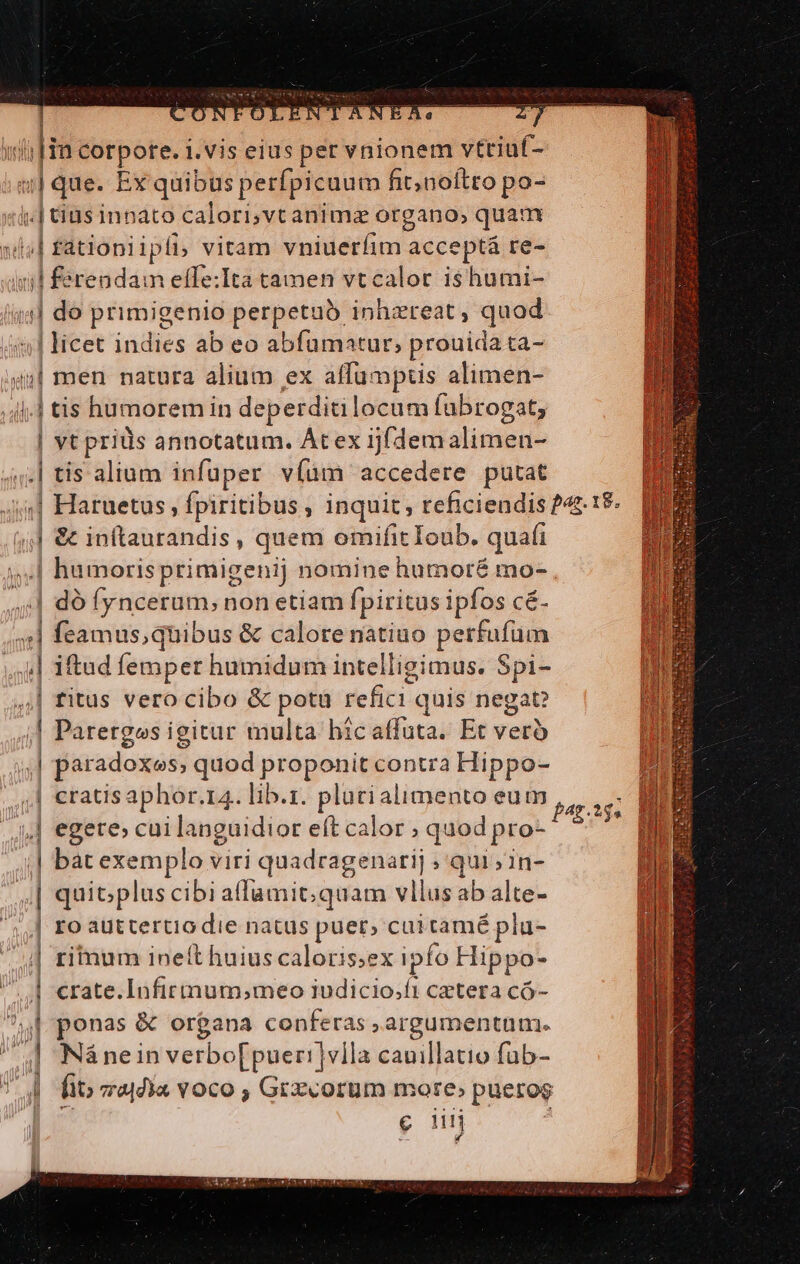 CONFOLENTANEA. 27
in corpore. i. vis eius per vnionem vtriuſ-
que. Ex quibus perſpicuum fit, noſtro po-
tius innato calori, vt animæ organo, quam
rationi ipſi, vitam vniuerſim acceptá re-
ferendam eſſe: Ita tamen vt calor is humi-
do primigenio perpetuò inhæreat, quod
licet indies ab eo abſumatur, prouida ta-
men natura alium ex aſſumptis alimen-
tis humorem in deperditi locum ſubrogat,
vt priùs annotatum. At ex ijſdem alimen-
tis alium inſuper vſum accedere putat
Haruetus, ſpiritibus, inquit, reficiendis pag. 18.
& inſtaurandis, quem omiſit Ioub. quaſi
humoris primigenij nomine humoré mo-
dò ſyncerum, non etiam ſpiritus ipſos cé-
ſeamus, quibus & calore natiuo perfuſum
iſtud ſemper humidum intelligimus. Spi-
ritus vero cibo & potu refici quis negat?
Parergωs igitur multa hîc aſſuta. Et verò
paradoxωs, quod proponit contra Hippo-
cratis aphor. 14. lib. 1. pluri alimento eum
egere, cui languidior eſt calor, quod pro- pag. 25.
bat exemplo viri quadragenarij, qui, in-
quit, plus cibi aſſumit, quam vllus ab alte-
ro aut tertio die natus puer, cui tamé plu-
rimum ineſt huius caloris, ex ipſo Hippo-
crate. Infirmum, meo iudicio, ſi cætera có-
ponas & organa conferas, argumentum.
Ná ne in verbo [pueri] vlla cauillatio ſub-
ſit, παιδία voco, Græcorum more, pueros
c iiij